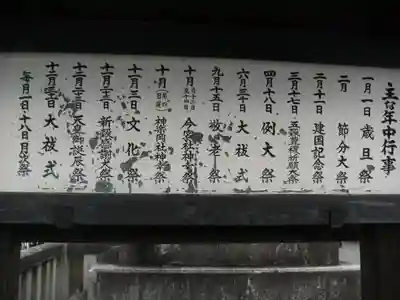 主な年中行事
一月一日 歳旦祭
二月 節分大祭
二月十一日 建国記念祭
三月十七日 五穀豊穣祈願大祭
四月十八日 例大祭
六月三十日 大祓式
九月十五日 敬老祭
十月 今宮社神幸祭
十月 神楽岡社神幸祭
十一月三日 文化祭
十一月二十三日 新穀感謝大祭
十二月二十三日 天皇御誕辰祭
十二月三十一日 大祓式
毎月一日、十八日 月次祭